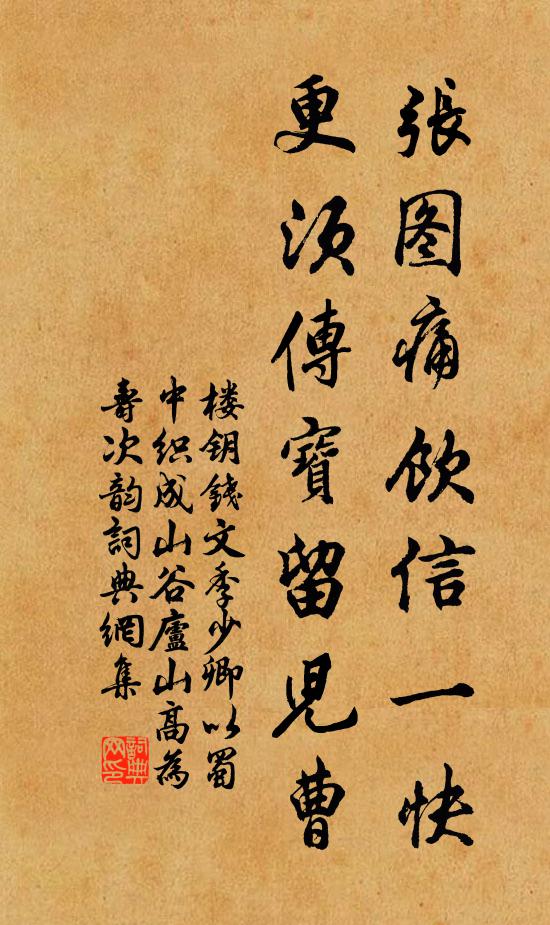 張图痛飲信一快
更須傳寶留児曹
楼钥錢文季少卿以蜀
中织成山谷廬山高為
壽次韵詞典網集
詞典网印